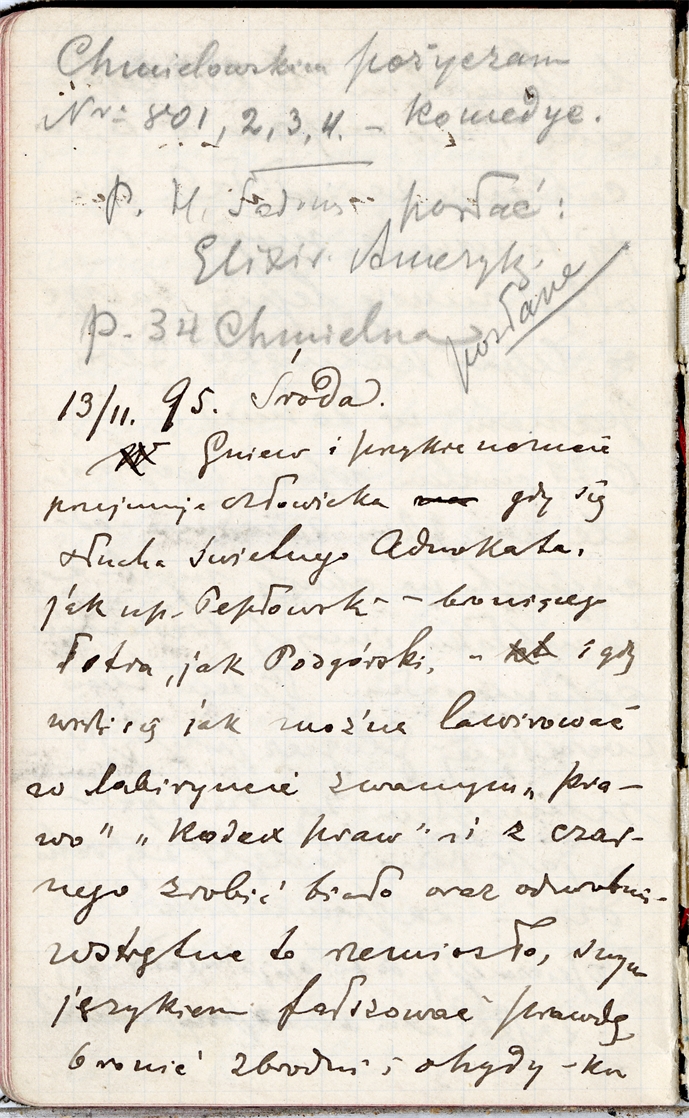 Chmielowskiem pożyczam
Nr: 801, 2, 3, 4. – Komedye.
P. H. posłać:
Elixir. Ameryk.
P. 34 Chmielna
posłane
13/11. 95. Środa.
Gniew i przykre uczucie
przejmuje człowieka gdy się
słucha świetnego Adwokata,
jak np. Pepłowski – broniącego
łotra, jak Podgórski, – i gdy
widzi się jak można lawirować
w labiryncie zwanym „pra-
wo" „Kodex praw" i z czar-
nego zrobić biało oraz odwrotnie-
wstrętne to rzemiosło, swym
językiem fałszować prawdę,
bronić zbrodni i ohydy – ku